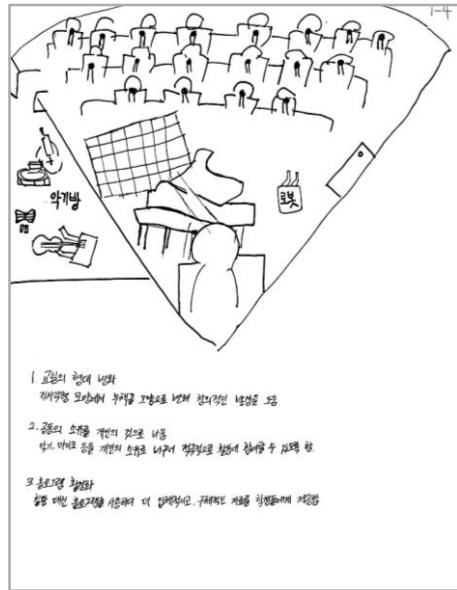 1-4
악기방
로봇
1. 교실의 형태 변화
직사각형 모양에서 부채꼴 모양으로 변해 창의적인 발상을 도움
2. 공동의 소유를 개인의 것으로 나눔
악기, 마이크 등을 개인의 소유로 나누어 적극적으로 활동에 참여할 수 있도록 함.
3. 홀로그램 활성화
칠판 대신 홀로그램을 사용하여 더 입체적이고, 구체적인 자료를 학생들에게 제공함